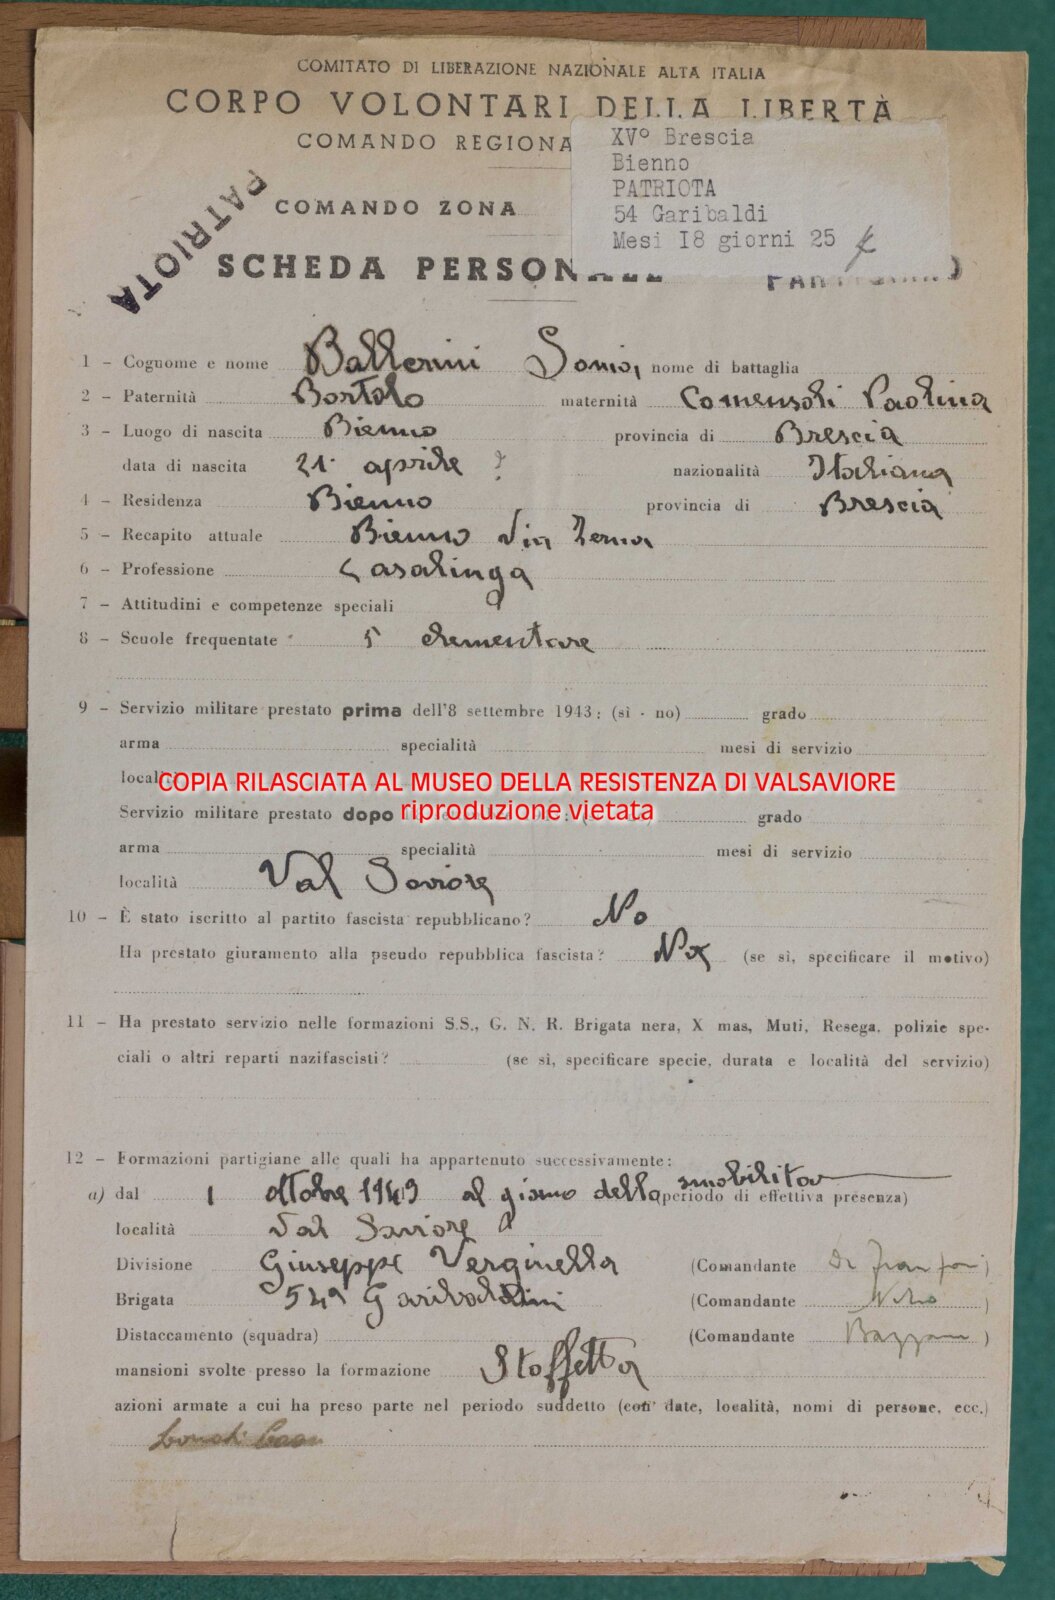 COMITATO DI LIBERAZIONE NAZIONALE ALTA ITALIA
CORPO VOLONTARI DELLA LIBERTÀ
COMANDO REGIONA
XVº Brescia
Bienno
PATRIOTA
54 Garibaldi
Mesi I8 giorni 25
PATRIOTA
COMANDO ZONA
SCHEDA PERSONALE
1 - Cognome e nome Ballerini Sonia, nome di battaglia
2 - Paternità Bortolo maternità Comensoli Paolina
3 - Luogo di nascita Bienno provincia di Brescia
data di nascita 21· aprile ? nazionalità Italiana
4 - Residenza Bienno provincia di Brescia
5 - Recapito attuale Bienno Via
6 - Professione Casalinga
7 - Attitudini e competenze speciali
8 - Scuole frequentate 5 elementare
9 - Servizio militare prestato prima dell'8 settembre 1943: (sì - no) grado
arma specialità mesi di servizio
località
COPIA RILASCIATA AL MUSEO DELLA RESISTENZA DI VALSAVIORE
riproduzione vietata
Servizio militare prestato dopo grado
arma specialità mesi di servizio
località Val Saviore
10 - È stato iscritto al partito fascista repubblicano? No
Ha prestato giuramento alla pseudo repubblica fascista? No (se sì, specificare il motivo)
11 - Ha prestato servizio nelle formazioni S.S., G. N. R. Brigata nera, X mas, Muti, Resega, polizie spe-
ciali o altri reparti nazifascisti? (se sì, specificare specie, durata e località del servizio)
12 - Formazioni partigiane alle quali ha appartenuto successivamente:
a) dal 1 ottobre 1943 al giorno della smobilitaz (periodo di effettiva presenza)
località Val Saviore
Divisione Giuseppe Verginella (Comandante )
Brigata 54ª Garibaldini (Comandante Nino )
Distaccamento (squadra) (Comandante Bazzana )
mansioni svolte presso la formazione Staffetta
azioni armate a cui ha preso parte nel periodo suddetto (con date, località, nomi di persone, ecc.)